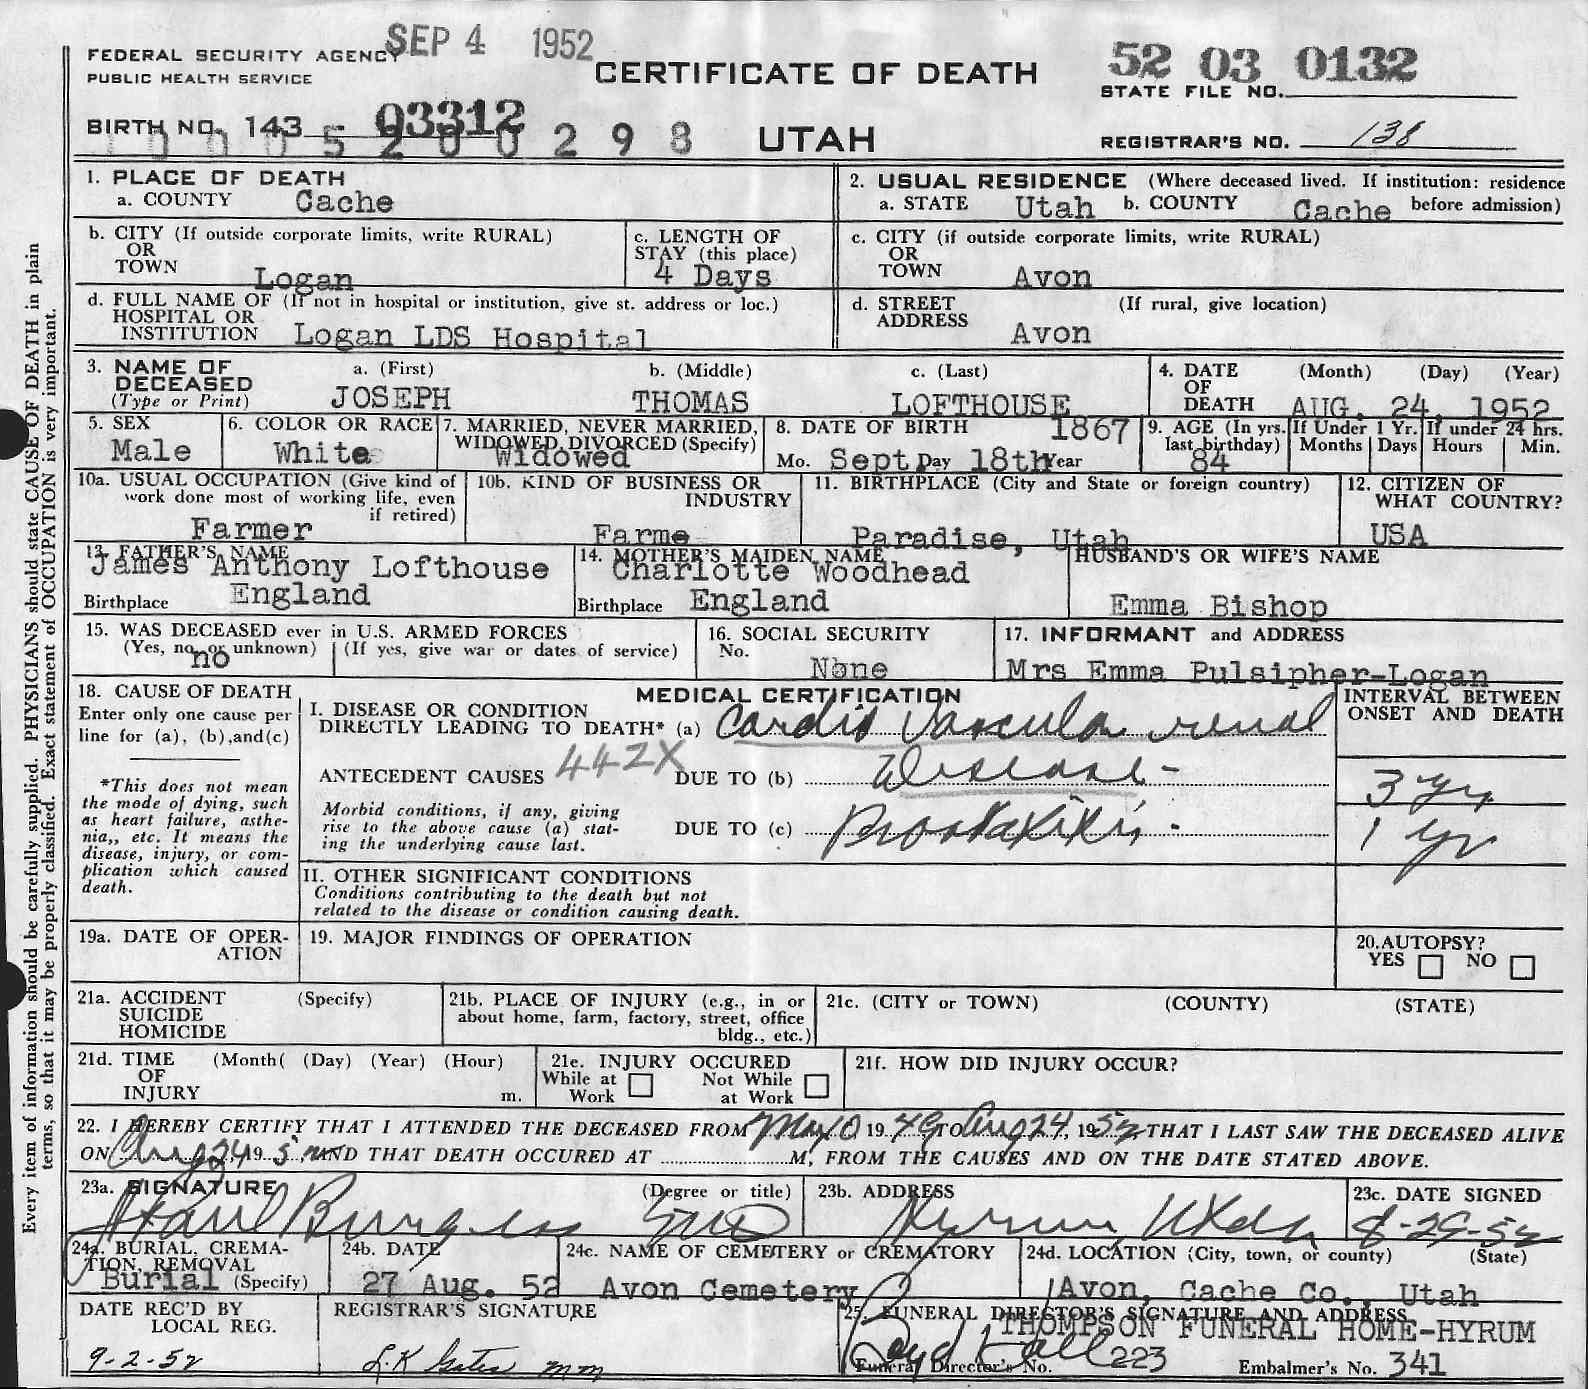 SEP 4 1952
FEDERAL SECURITY AGENCY
PUBLIC HEALTH SERVICE
CERTIFICATE OF DEATH
52 03 0132
STATE FILE NO.
BIRTH NO. 143 03312
5200298
UTAH
REGISTRAR'S NO. 138
1. PLACE OF DEATH
a. COUNTY Cache
2. USUAL RESIDENCE (Where deceased lived. If institution: residence before admission)
a. STATE Utah b. COUNTY Cache
b. CITY (If outside corporate limits, write RURAL)
OR
TOWN Logan
c. LENGTH OF
STAY (this place)
4 Days
c. CITY (if outside corporate limits, write RURAL)
OR
TOWN Avon
d. FULL NAME OF (If not in hospital or institution, give st. address or loc.)
HOSPITAL OR
INSTITUTION Logan LDS Hospital
d. STREET (If rural, give location)
ADDRESS Avon
3. NAME OF
DECEASED
(Type or Print)
a. (First) b. (Middle) c. (Last)
JOSEPH THOMAS LOFTHOUSE
4. DATE (Month) (Day) (Year)
OF
DEATH AUG. 24, 1952
5. SEX
Male
6. COLOR OR RACE
White
7. MARRIED, NEVER MARRIED,
WIDOWED, DIVORCED (Specify)
Widowed
8. DATE OF BIRTH 1867
Mo. Sept Day 18th Year
9. AGE (In yrs.
last birthday)
84
If Under 1 Yr.
Months Days
If under 24 hrs.
Hours Min.
10a. USUAL OCCUPATION (Give kind of
work done most of working life, even
if retired)
Farmer
10b. KIND OF BUSINESS OR
INDUSTRY
Farme
11. BIRTHPLACE (City and State or foreign country)
Paradise, Utah
12. CITIZEN OF
WHAT COUNTRY?
USA
13. FATHER'S NAME
James Anthony Lofthouse
Birthplace England
14. MOTHER'S MAIDEN NAME
Charlotte Woodhead
Birthplace England
HUSBAND'S OR WIFE'S NAME
Emma Bishop
15. WAS DECEASED ever in U.S. ARMED FORCES
(Yes, no, or unknown) (If yes, give war or dates of service)
no
16. SOCIAL SECURITY
No.
None
17. INFORMANT and ADDRESS
Mrs Emma Pulsipher-Logan
18. CAUSE OF DEATH
Enter only one cause per
line for (a), (b),and(c)
*This does not mean
the mode of dying, such
as heart failure, asthe-
nia,, etc. It means the
disease, injury, or com-
plication which caused
death.
MEDICAL CERTIFICATION
I. DISEASE OR CONDITION
DIRECTLY LEADING TO DEATH* (a) Cardio Vascular renal
ANTECEDENT CAUSES 442X DUE TO (b) Disease -
Morbid conditions, if any, giving
rise to the above cause (a) stat-
ing the underlying cause last.
DUE TO (c) Prostatitis -
INTERVAL BETWEEN
ONSET AND DEATH
3 yr
1 yr
II. OTHER SIGNIFICANT CONDITIONS
Conditions contributing to the death but not
related to the disease or condition causing death.
19a. DATE OF OPER-
ATION
19. MAJOR FINDINGS OF OPERATION
20.AUTOPSY?
YES NO
21a. ACCIDENT (Specify)
SUICIDE
HOMICIDE
21b. PLACE OF INJURY (e.g., in or
about home, farm, factory, street, office
bldg., etc.)
21c. (CITY or TOWN) (COUNTY) (STATE)
21d. TIME (Month( (Day) (Year) (Hour)
OF
INJURY m.
21e. INJURY OCCURED
While at
Work
Not While
at Work
21f. HOW DID INJURY OCCUR?
22. I HEREBY CERTIFY THAT I ATTENDED THE DECEASED FROM 19 49 TO Aug 24, 1952 THAT I LAST SAW THE DECEASED ALIVE
ON Aug 24, 19 AND THAT DEATH OCCURED AT M, FROM THE CAUSES AND ON THE DATE STATED ABOVE.
23a. SIGNATURE (Degree or title)
Burgess MD
23b. ADDRESS
Hyrum, Utah
23c. DATE SIGNED
8-29-52
24a. BURIAL, CREMA-
TION, REMOVAL
Burial (Specify)
24b. DATE
27 Aug. 52
24c. NAME OF CEMETERY or CREMATORY
Avon Cemetery
24d. LOCATION (City, town, or county) (State)
Avon, Cache Co., Utah
DATE REC'D BY
LOCAL REG.
9-2-52
REGISTRAR'S SIGNATURE
25. FUNERAL DIRECTOR'S SIGNATURE AND ADDRESS
THOMPSON FUNERAL HOME-HYRUM
Boyd Hall
Funeral Director's No. 223
Embalmer's No. 341
Every item of information should be carefully supplied. PHYSICIANS should state CAUSE OF DEATH in plain
terms, so that it may be properly classified. Exact statement of OCCUPATION is very important.